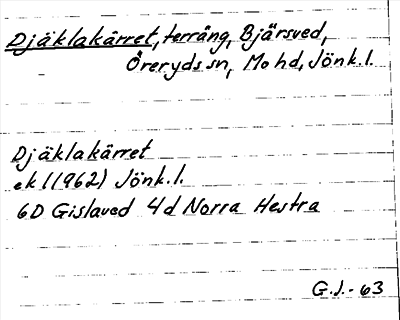 Djäklakärret, terräng, Bjärsved,
Öreryds sn, Mo hd, Jönk.l.
Djäklakärret
ekl (1962) Jönk.l.
6D Gislaved 4d Norra Hestra
G.J.-63